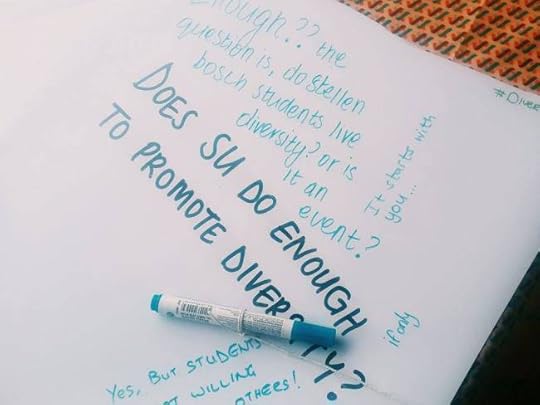 Enough?? the
question is, do stellen
bosch students live
diversity? or is
it an
event?
It starts with
you...
#Diver
DOES SU DO ENOUGH
TO PROMOTE DIVERSITY?
if only
Yes, BUT STUDENTS
WILLING
OTHERS!